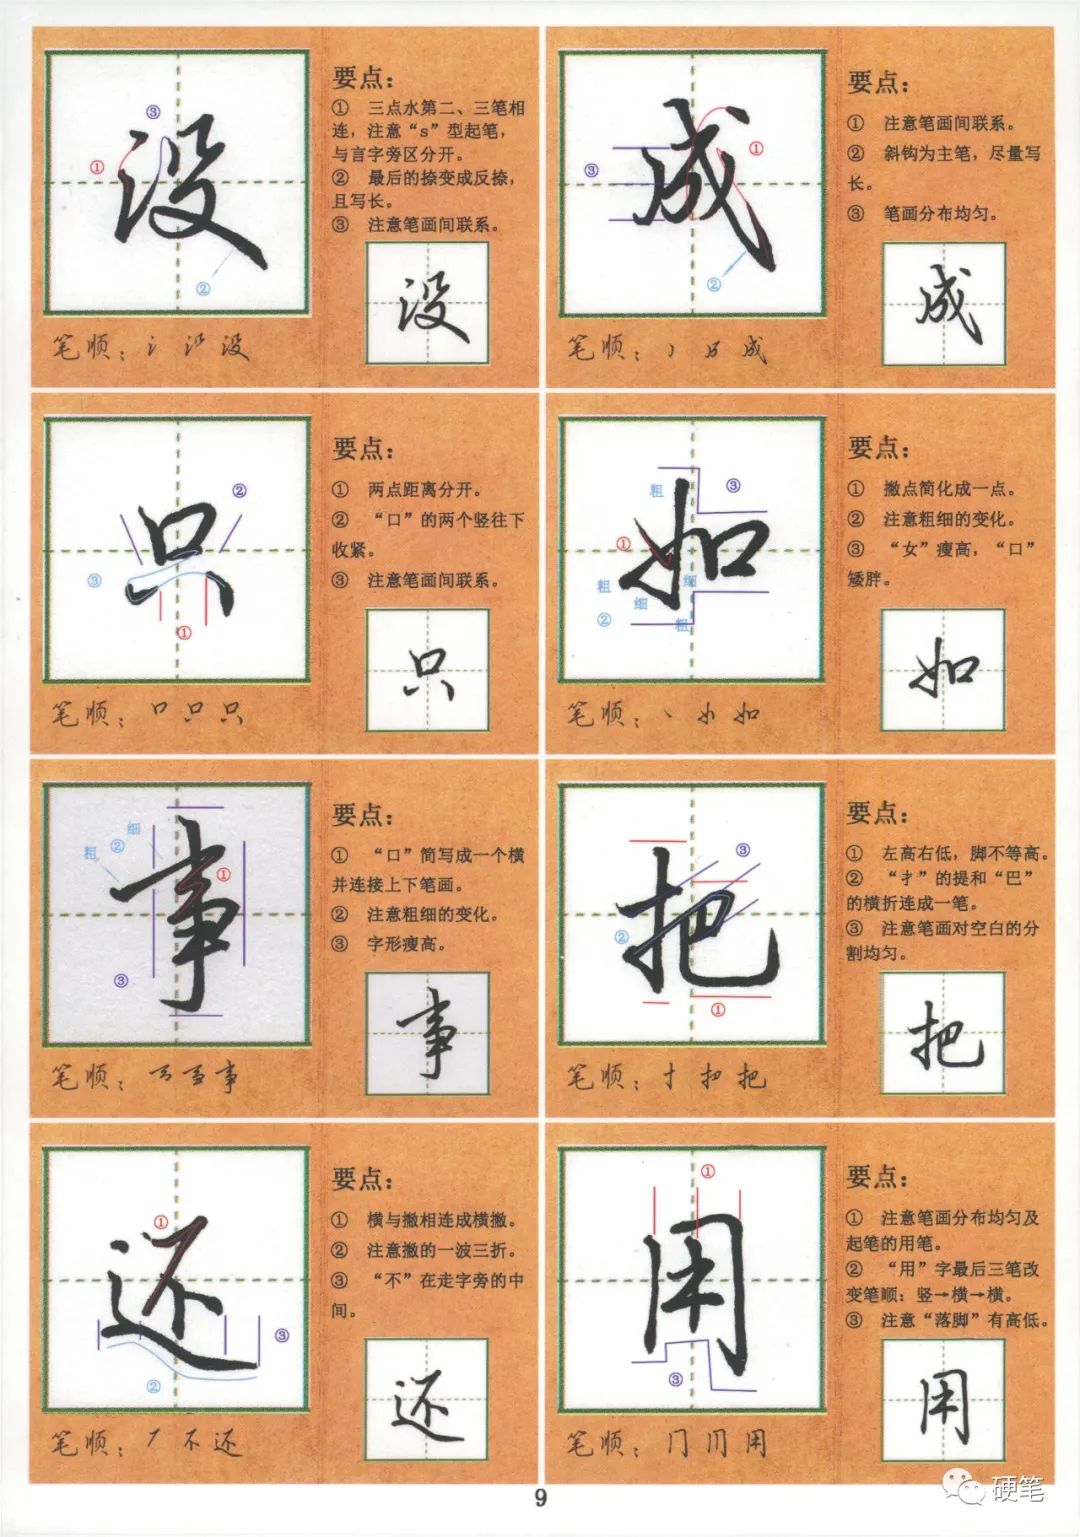 没
③
①
②
要点：
① 三点水第二、三笔相
连，注意“s”型起笔，
与言字旁区分开。
② 最后的捺变成反捺，
且写长。
③ 注意笔画间联系。
没
笔顺：氵 沿 没
成
①
③
②
要点：
① 注意笔画间联系。
② 斜钩为主笔，尽量写
长。
③ 笔画分布均匀。
成
笔顺：丿 成
只
②
③
①
要点：
① 两点距离分开。
② “口”的两个竖往下
收紧。
③ 注意笔画间联系。
只
笔顺：口 只 只
如
粗
③
①
粗
细
细
②
粗
要点：
① 撇点简化成一点。
② 注意粗细的变化。
③ “女”瘦高，“口”
矮胖。
如
笔顺：丶 如
事
细
②
粗
①
③
要点：
① “口”简写成一个横
并连接上下笔画。
② 注意粗细的变化。
③ 字形瘦高。
事
笔顺：事
把
③
②
①
要点：
① 左高右低，脚不等高。
② “扌”的提和“巴”
的横折连成一笔。
③ 注意笔画对空白的分
割均匀。
把
笔顺：扌 把
还
①
③
②
要点：
① 横与撇相连成横撇。
② 注意撇的一波三折。
③ “不”在走字旁的中
间。
还
笔顺：丆 不 还
用
①
③
要点：
① 注意笔画分布均匀及
起笔的用笔。
② “用”字最后三笔改
变笔顺：竖→横→横。
③ 注意“落脚”有高低。
用
笔顺：冂 用
9
硬笔